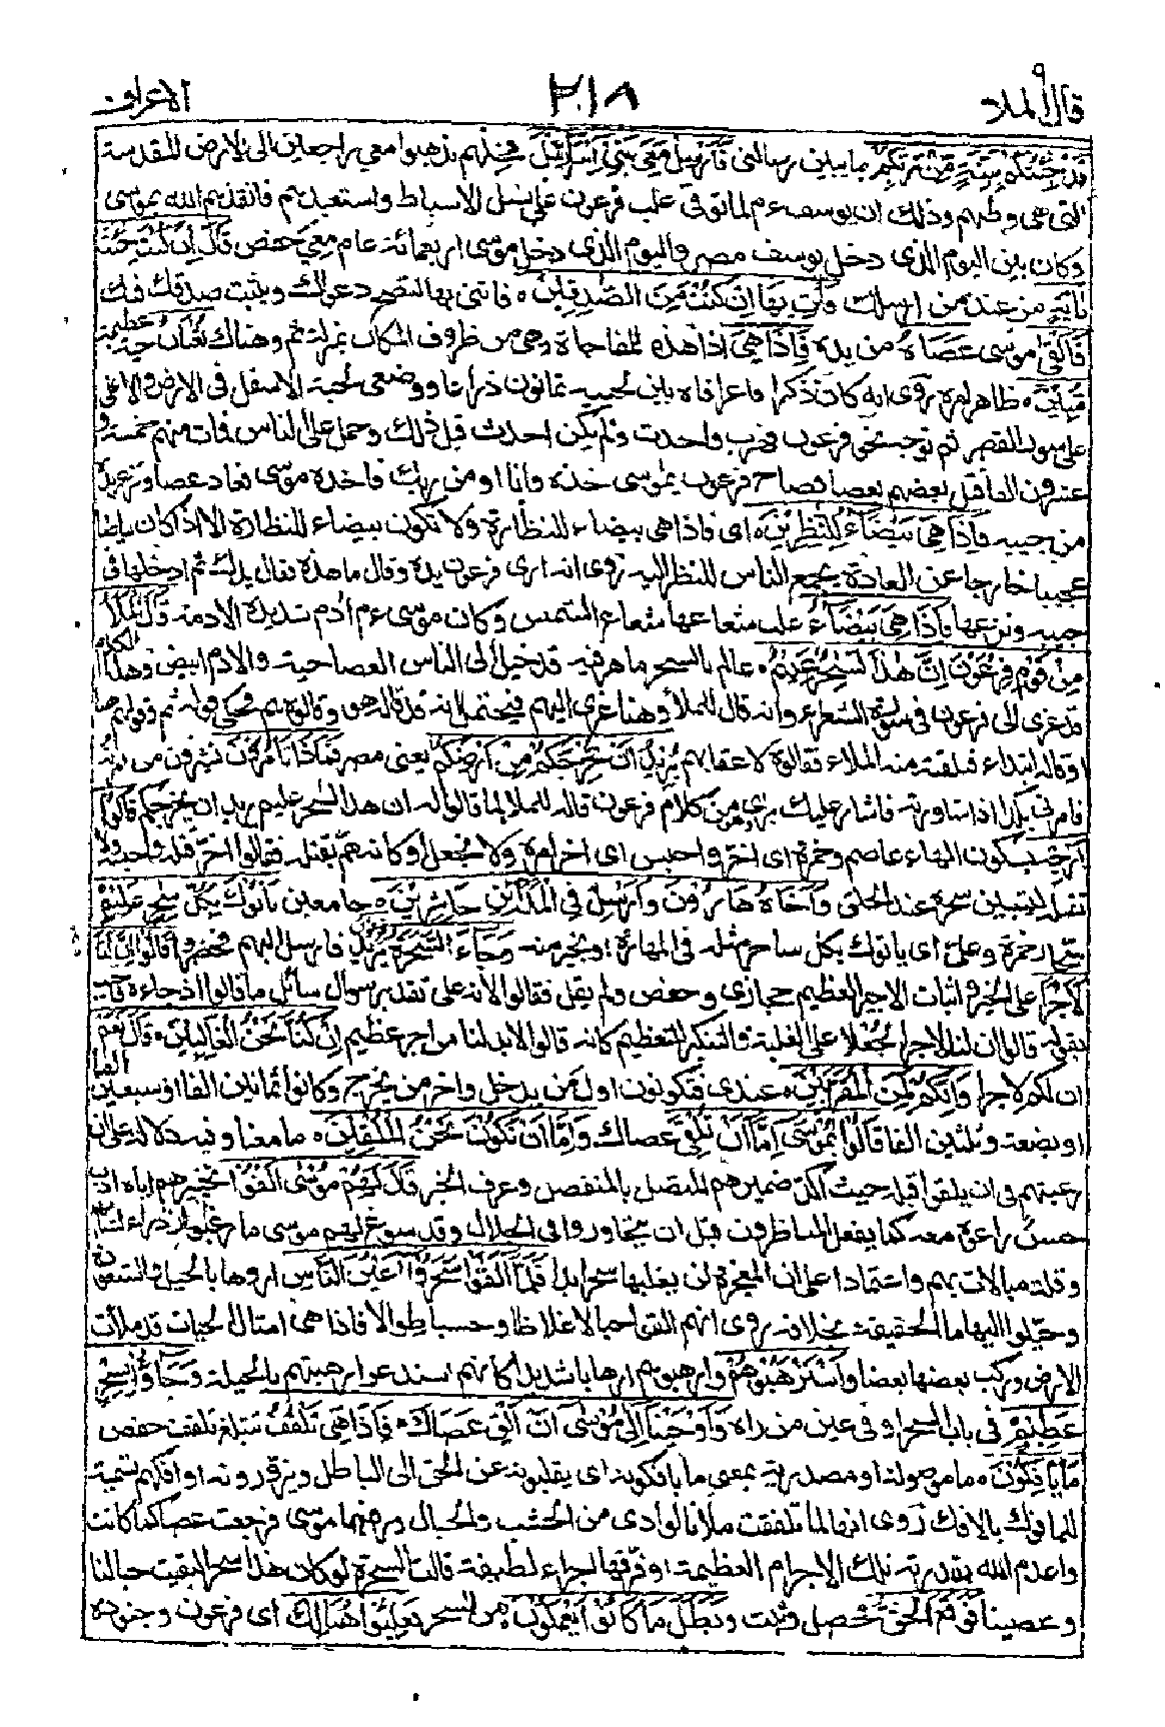 قال الملاء ٩
٢١٨
الاعراف
قَدْ جِئْتُكُمْ بِبَيِّنَةٍ مِّنْ رَّبِّكُمْ بما يبين رسالتى فَاَرْسِلْ مَعِىَ بَنِىْ اِسْرَآئِيْلَ فخلهم يذهبوا معى راجعين الى الارض المقدسة
التى هى وطنهم وذلك ان يوسف ءم لما توفى غلب فرعون على نسل الاسباط واستعبدهم فانقذهم الله بموسى
وكان بين اليوم الذى دخل يوسف مصر واليوم الذى دخل موسى اربعمائة عام معى حفص قَالَ اِنْ كُنْتَ جِئْتَ
بِاٰيَةٍ من عند من ارسلك فَاْتِ بِهَا اِنْ كُنْتَ مِنَ الصّٰدِقِيْنَ ٥ فاتنى بها لتصح دعواك ويثبت صدقك فيك
فَاَلْقٰى موسى عَصَاهُ من يده فَاِذَا هِىَ اذا هذه للمفاجاة وهى من ظروف المكان بمنزلة ثم وهناك ثُعْبَانٌ حية عظيمة
مُّبِيْنٌ ٥ ظاهر امره روى انه كان ذكرا فاغرا فاه بين لحييه ثمانون ذراعا ووضع لحيه الاسفل فى الارض والاعلى
على سور القصر ثم توجه نحو فرعون فهرب واحدث ولم يكن احدث قبل ذلك وحمل على الناس فمات منهم خمسة و
عشرون الفا قتل بعضهم بعضا فصاح فرعون يموسى خذه وانا اومن بك فاخذه موسى فعاد عصا ونزع يده
من جيبه فَاِذَا هِىَ بَيْضَآءُ لِلنّٰظِرِيْنَ ٥ اى فاذا هى بيضاء للنظارة ولا تكون بيضاء للنظارة الا اذا كان بياضا
عجيبا خارجا عن العادة يجمع الناس للنظر اليه روى انه ارى فرعون يده وقال ما هذه فقال يدك ثم ادخلها فى
جيبه ونزعها فَاِذَا هِىَ بَيْضَآءُ غلب شعاعها شعاع الشمس وكان موسى ءم اٰدم شديد الادمة قَالَ الْمَلَأُ
مِنْ قَوْمِ فِرْعَوْنَ اِنَّ هٰذَا لَسٰحِرٌ عَلِيْمٌ ٥ عالم بالسحر ماهر فيه قد خيل الى الناس العصا حية والادم ابيض وهذا الكلام
قد عزى الى فرعون فى سورة الشعراء وانه قال للملأ وهنا عزى اليهم فيحتمل انه قد قاله هو وقالوه هم فحكى قوله ثم وقولهم هنا
او قاله ابتداء فتلقته منه الملاء فقالوه لاعقابهم يُّرِيْدُ اَنْ يُّخْرِجَكُمْ مِّنْ اَرْضِكُمْ يعنى مصر فَمَاذَا تَاْمُرُوْنَ تشيرون من امرته
فامرنى بكذا اذا شاورته فاشار عليك براى وهو من كلام فرعون قاله للملا لما قالوا له ان هذا لسحر عليم يريد ان يخرجكم قَالُوْا
اَرْجِهْ بسكون الهاء عاصم وحمزة اى اخر واحبس اى اخر امره ولا تعجل او كانه هم بقتله فقالوا اخر قتله واحبسه ولا
تقتله ليتبين سحره عند الخلق وَاَخَاهُ هارون وَاَرْسِلْ فِى الْمَدَآئِنِ حٰشِرِيْنَ ٥ جامعين يَاْتُوْكَ بِكُلِّ سٰحِرٍ عَلِيْمٍ
سحار حمزة وعلى اى ياتوك بكل ساحر مثله فى المهارة او بخير منه وَجَآءَ السَّحَرَةُ فِرْعَوْنَ يريد فارسل اليهم فحضروا قَالُوْا اِنَّ لَنَا
لَاَجْرًا على الخبر واثبات الاجر العظيم حجازى وحفص ولم يقل فقالوا لانه على تقدير سوال سائل ما قالوا اذ جاءوه فاجيب
بقوله قالوا ان لنا لاجرا لجعلا على الغلبة والتنكير للتعظيم كانه قالوا لا بد لنا من اجر عظيم اِنْ كُنَّا نَحْنُ الْغٰلِبِيْنَ ٥ قَالَ نَعَمْ
ان لكم لاجرا وَاِنَّكُمْ لَمِنَ الْمُقَرَّبِيْنَ ٥ عندى فتكونون اول من يدخل واخر من يخرج وكانوا ثمانين الفا او سبعين الفا
او بضعة وثلثين الفا قَالُوْا يٰمُوْسٰى اِمَّآ اَنْ تُلْقِىَ عصاك وَاِمَّآ اَنْ نَّكُوْنَ نَحْنُ الْمُلْقِيْنَ ٥ ما معنا وفيه دلالة على ان
رغبتهم فى ان يلقوا قبله حيث اكد ضميرهم المتصل بالمنفصل وعرف الخبر قَالَ لهم مُوْسٰى اَلْقُوْا تخييرهم اياه ادب
حسن راعوه معه كما يفعل المناظرون قبل ان يتحاوروا فى الجدال وقد سوغ لهم موسى ما رغبوا فيه ازدراء لشانهم
وقلة مبالات بهم واعتمادا على ان المعجزة لن يغلبها سحر ابدا فَلَمَّآ اَلْقَوْا سَحَرُوْٓا اَعْيُنَ النَّاسِ اروها بالحيل والشعوذة
وخيلوا اليها ما الحقيقة بخلافه روى انهم القوا حبالا غلاظا وخشبا طوالا فاذا هى امثال الحيات قد ملأت
الارض وركب بعضها بعضا وَاسْتَرْهَبُوْهُمْ وارهبوهم ارهابا شديدا كانهم استدعوا رهبتهم بالحيلة وَجَآءُوْ بِسِحْرٍ
عَظِيْمٍ فى باب السحر او فى عين من راه وَاَوْحَيْنَآ اِلٰى مُوْسٰٓى اَنْ اَلْقِ عَصَاكَ ٥ فَاِذَا هِىَ تَلْقَفُ تبتلع تلقف حفص
مَا يَاْفِكُوْنَ ٥ ما موصولة او مصدرية بمعنى ما يافكونه اى يقلبونه عن الحق الى الباطل ويزورونه او افكهم تسمية
للمافوك بالافك روى انها لما تلقفت ملأ الوادى من الخشب والحبال ورفعها موسى فرجعت عصا كما كانت
واعدم الله بقدرته تلك الاجرام العظيمة او فرقها اجزاء لطيفة قالت السحرة لو كان هذا سحرا لبقيت حبالنا
وعصينا فَوَقَعَ الْحَقُّ فحصل وثبت وَبَطَلَ مَا كَانُوْا يَعْمَلُوْنَ ٥ من السحر فَغُلِبُوْا هُنَالِكَ اى فرعون وجنوده